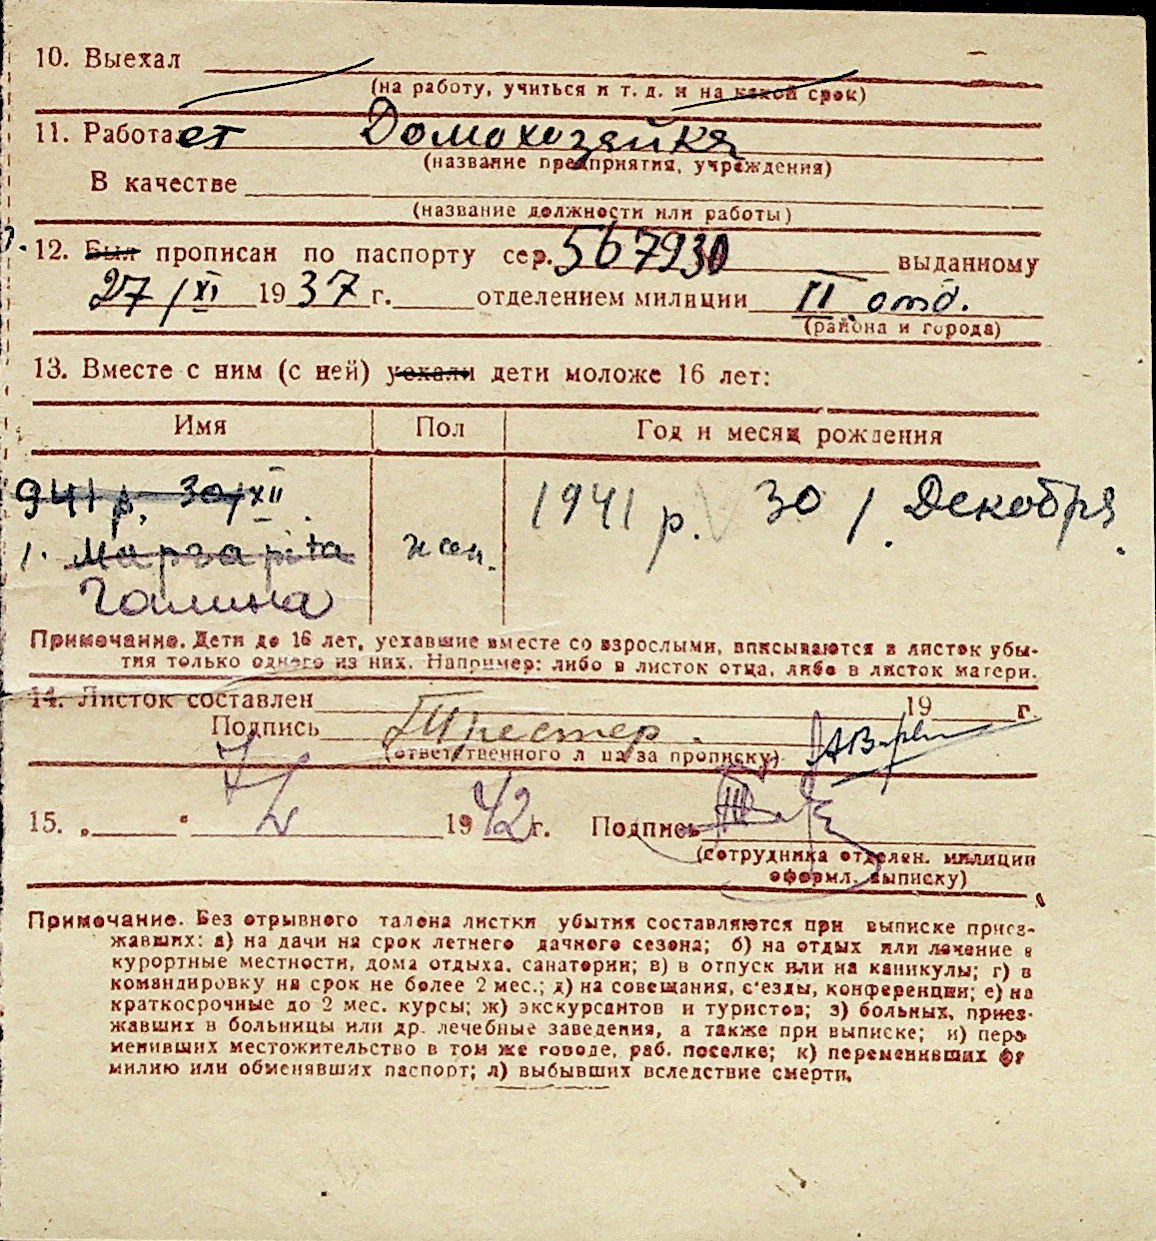 10. Выехал
(на работу, учиться и т. д. и на какой срок)
11. Работает Домохозяйка
(название предприятия, учреждения)
В качестве
(название должности или работы)
12. Был прописан по паспорту сер. 567930 выданному
27/XI 1937 г. отделением милиции II отд.
(района и города)
13. Вместе с ним (с ней) уехали дети моложе 16 лет:
Имя Пол Год и месяц рождения
941 р. 30/XII
1941 р. 30 / Декобря.
1. Маргаріta жен.
Галина
Примечание. Дети до 16 лет, уехавшие вместе со взрослыми, вписываются в листок убы-
тия только одного из них. Например: либо в листок отца, либо в листок матери.
14. Листок составлен 19 г
Подпись
(ответственного лица за прописку)
15. „ “ 1942 г. Подпись
(сотрудника отделен. милиции
оформл. выписку)
Примечание. Без отрывного талона листки убытия составляются при выписке приез-
жавших: а) на дачи на срок летнего дачного сезона; б) на отдых или лечение в
курортные местности, дома отдыха. санатории; в) в отпуск или на каникулы; г) в
командировку на срок не более 2 мес.; д) на совещания, с'езды, конференции; е) на
краткосрочные до 2 мес. курсы; ж) экскурсантов и туристов; з) больных, приез-
жавших в больницы или др. лечебные заведения, а также при выписке; и) пере
менивших местожительство в том же городе, раб. поселке; к) переменивших фа
милию или обменявших паспорт; л) выбывших вследствие смерти.